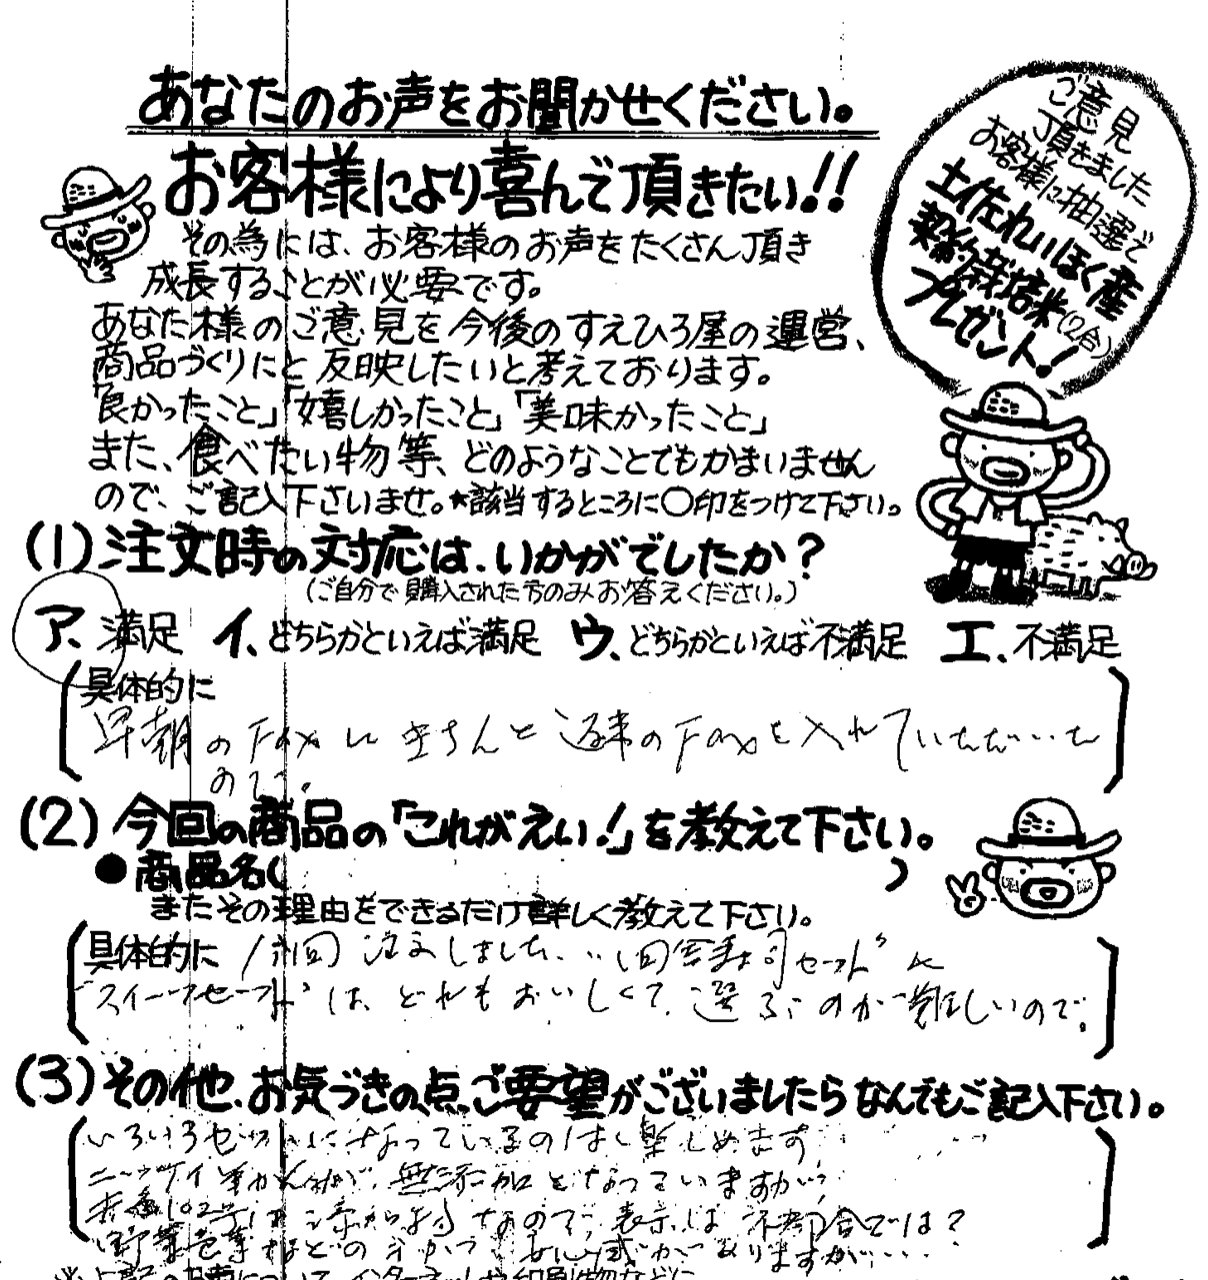 あなたのお声をお聞かせください。
お客様により喜んで頂きたい!!
ご意見
頂きました
お客様に抽選で
土佐れいほく産
契約栽培米(2合)
プレゼント!
その為には、お客様のお声をたくさん頂き
成長することが必要です。
あなた様のご意見を今後のすえひろ屋の運営、
商品づくりにと反映したいと考えております。
「良かったこと」「嬉しかったこと」「美味かったこと」
また、食べたい物等、どのようなことでもかまいません
ので、ご記入下さいませ。★該当するところに〇印をつけて下さい。
(1)注文時の対応は、いかがでしたか?
(ご自分で購入された方のみお答えください。)
ア、満足 イ、どちらかといえば満足 ウ、どちらかといえば不満足 エ、不満足
具体的に
早朝のFaxにきちんと返事のFaxを入れていただいた
ので。
(2)今回の商品の「これがえい!」を教えて下さい。
●商品名( )
またその理由をできるだけ詳しく教えて下さい。
具体的に 注文しました 寿司セット"と
"スイーツセット"は、どれもおいしくて、選ぶのが難しいので。
(3)その他、お気づきの点、ご要望がございましたらなんでもご記入下さい。
いろいろセットになっているのは、楽しめます。
無添加となっていますが、
なので、表示は不都合では?
野菜 などの